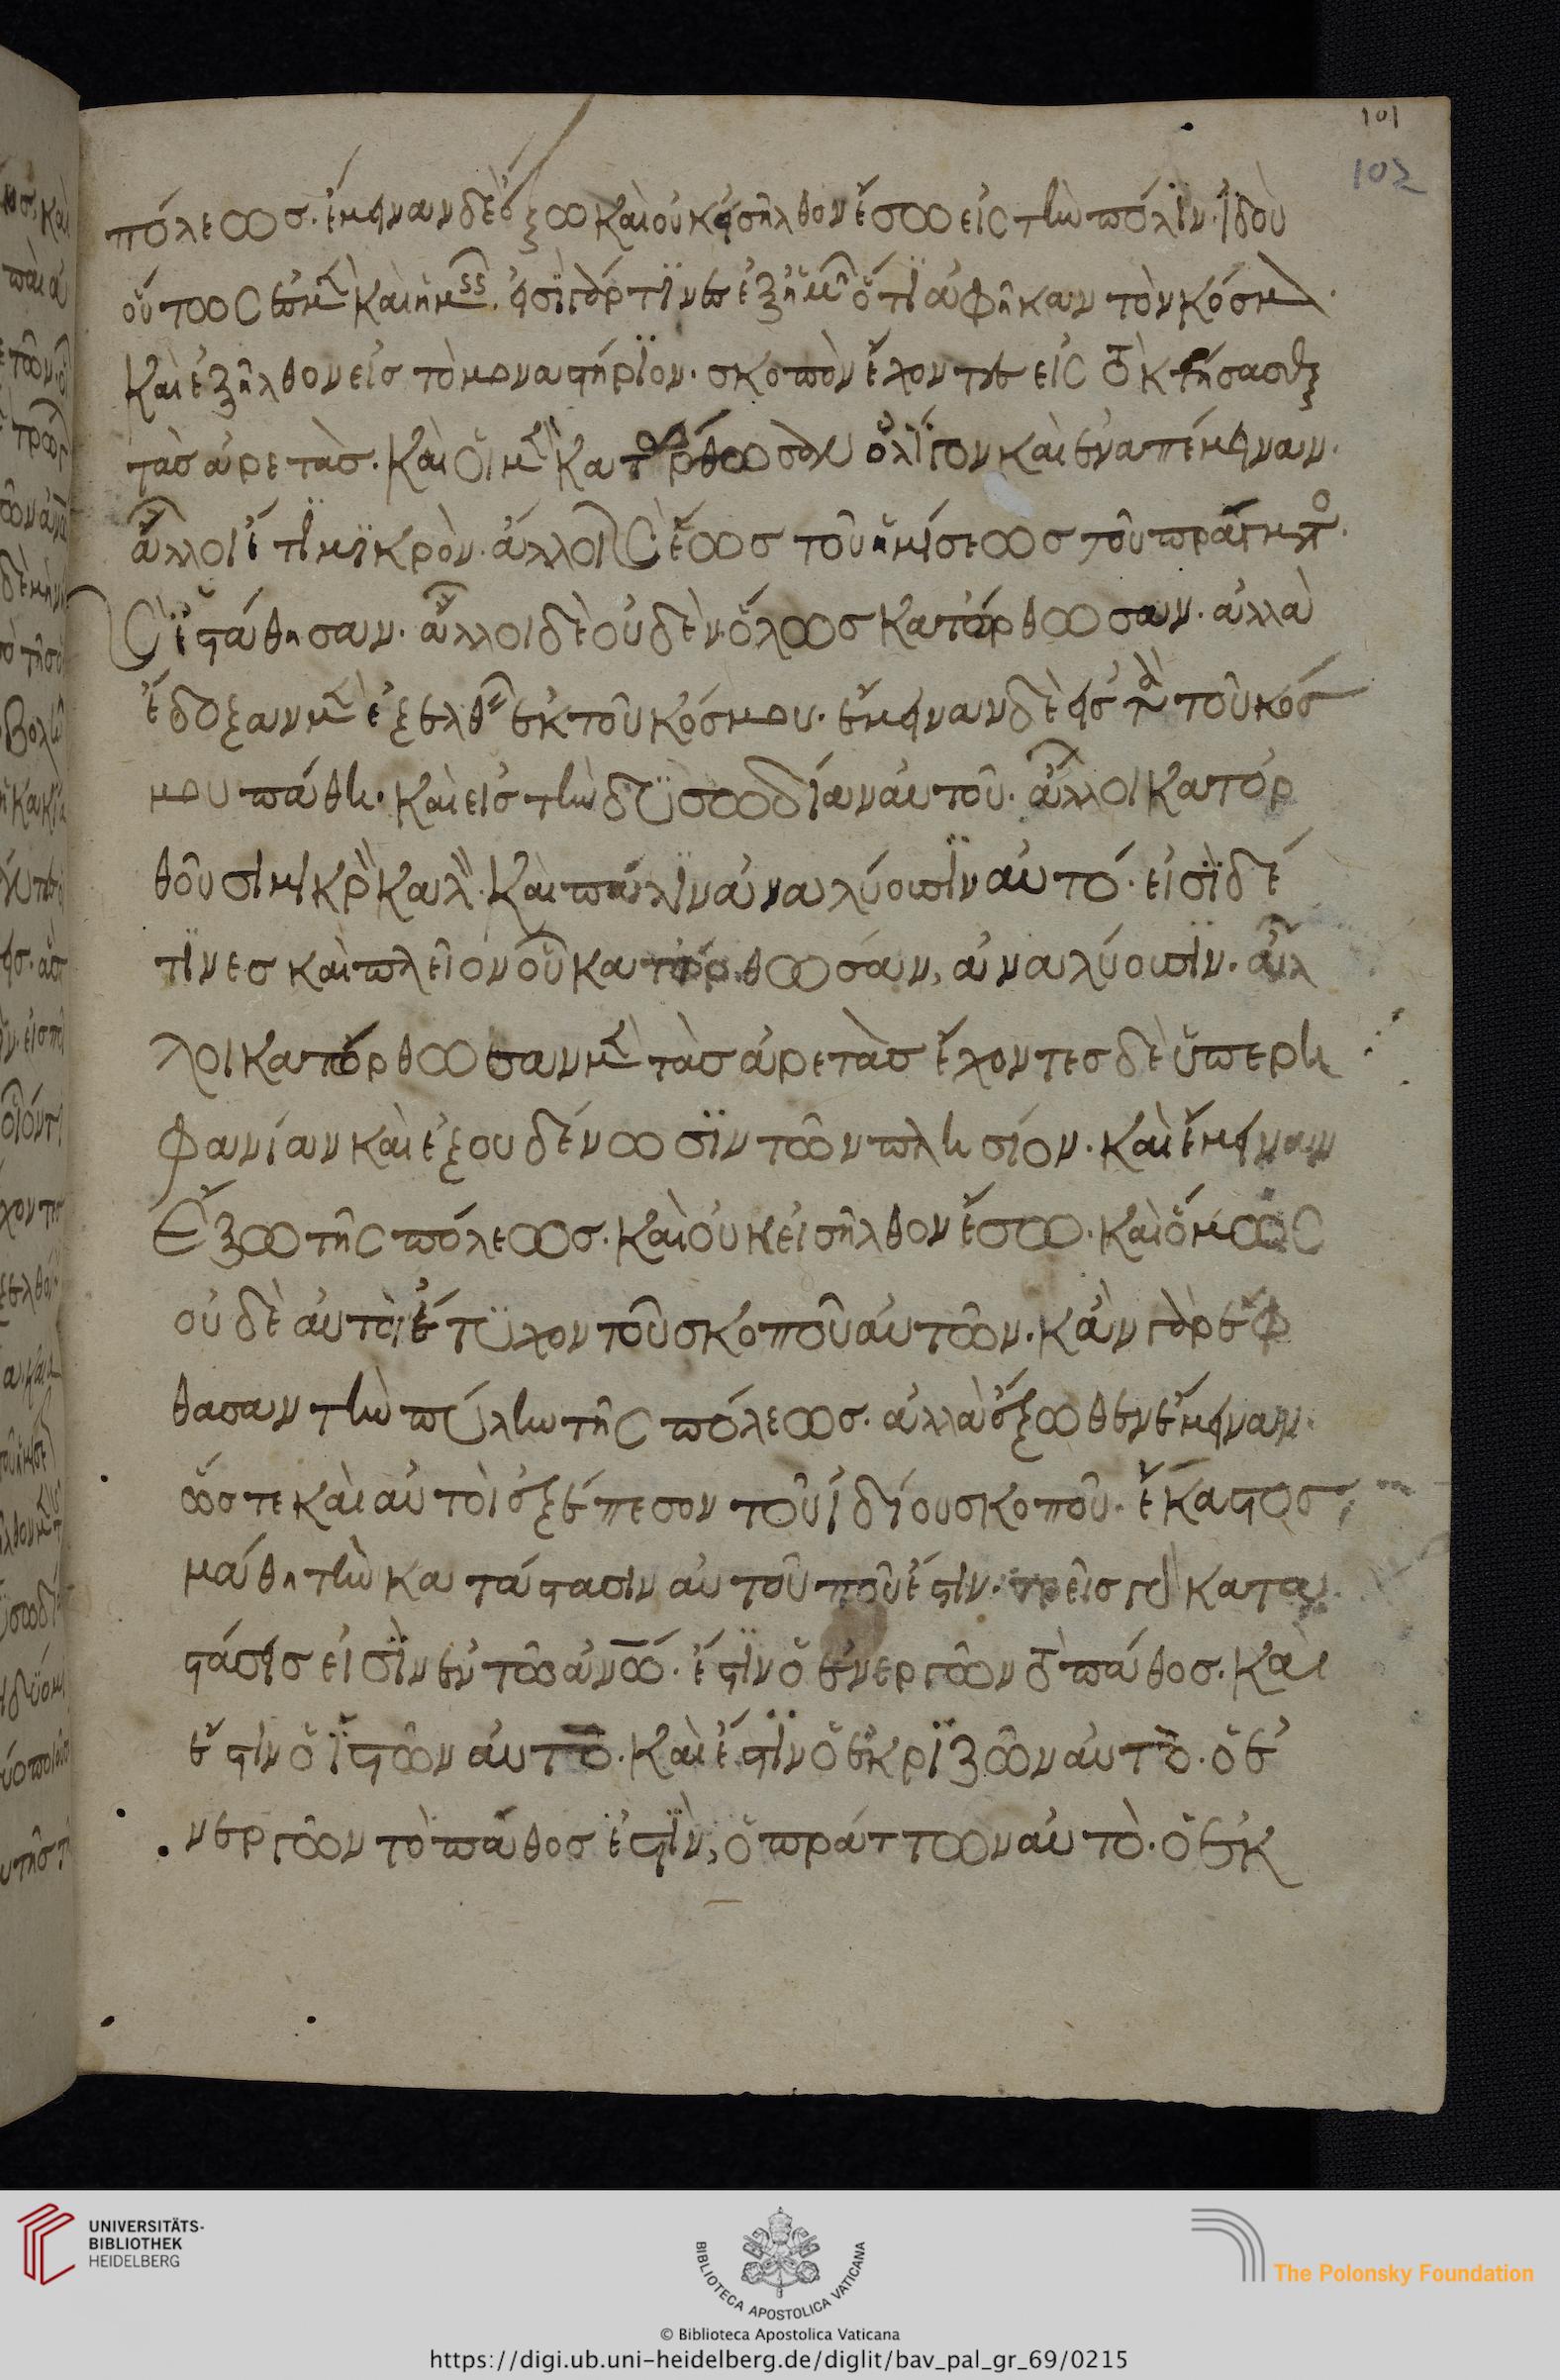 101
102
πόλεως. ἔμειναν δὲ ἔξω καὶ οὐκ εἰσῆλθον ἔσω εἰς τὴν πόλιν. ἰδοὺ
οὕτως ἐσμὲν καὶ ἡμεῖς. εἰσὶ γάρ τινες ἐξ ἡμῶν ὅτι ἀφῆκαν τὸν κόσμον.
καὶ ἐξῆλθον εἰς τὸ μοναστήριον. σκοπὸν ἔχοντες εἰς τὸ κτήσασθαι
τὰς ἀρετὰς. καὶ οἱ μὲν κατώρθωσαν ὀλίγον καὶ ἐναπέμειναν.
ἄλλοι ἔτι μικρὸν. ἄλλοι ἕως τοῦ ἡμίσεως τοῦ πράγματος
ἐστάθησαν. ἄλλοι δὲ οὐδὲν ὅλως κατόρθωσαν. ἀλλὰ
ἔδοξαν μὲν ἐξελθεῖν ἐκ τοῦ κόσμου. ἔμειναν δὲ εἰς τὰ τοῦ κόσ
μου πάθη. καὶ εἰς τὴν δυσωδίαν αὐτοῦ. ἄλλοι κατορ
θοῦσι μικρὰ καλὰ. καὶ πάλιν ἀναλύουσιν αὐτό. εἰσὶ δέ
τινες καὶ πλεῖον οὗ κατόρθωσαν, ἀναλύουσιν. ἄλ
λοι κατόρθωσαν μὲν τὰς ἀρετὰς ἔχοντες δὲ ὑπερη
φανίαν καὶ ἐξουδένωσιν τῶν πλησίον. καὶ ἔμειναν
ἔξω τῆς πόλεως. καὶ οὐκ εἰσῆλθον ἔσω. καὶ ὅμως
οὐδὲ αὐτοὶ ἔτυχον τοῦ σκοποῦ αὐτῶν. κἂν γὰρ ἔφ
θασαν τὴν πύλην τῆς πόλεως. ἀλλὰ ἔξωθεν ἔμειναν.
ὥστε καὶ αὐτοὶ ἐξέπεσον τοῦ ἰδίου σκοποῦ. ἕκαστος
μάθῃ τὴν κατάστασιν αὐτοῦ ποῦ ἔστιν. τρεῖς γὰρ κατα
στάσις εἰσὶν ἐν τῶ ἀνῶ. ἔστιν ὁ ἐνεργῶν τὸ πάθος. καὶ
ἔστιν ὁ ἱστῶν αὐτὸ. καὶ ἔστιν ὁ ἐκριζῶν αὐτὸ. ὁ ἐ
νεργῶν τὸ πάθος ἐστὶν, ὁ πράττων αὐτὸ. ὁ ἐκ
UNIVERSITÄTS-
BIBLIOTHEK
HEIDELBERG
BIBLIOTECA APOSTOLICA VATICANA
The Polonsky Foundation
© Biblioteca Apostolica Vaticana
https://digi.ub.uni-heidelberg.de/diglit/bav_pal_gr_69/0215